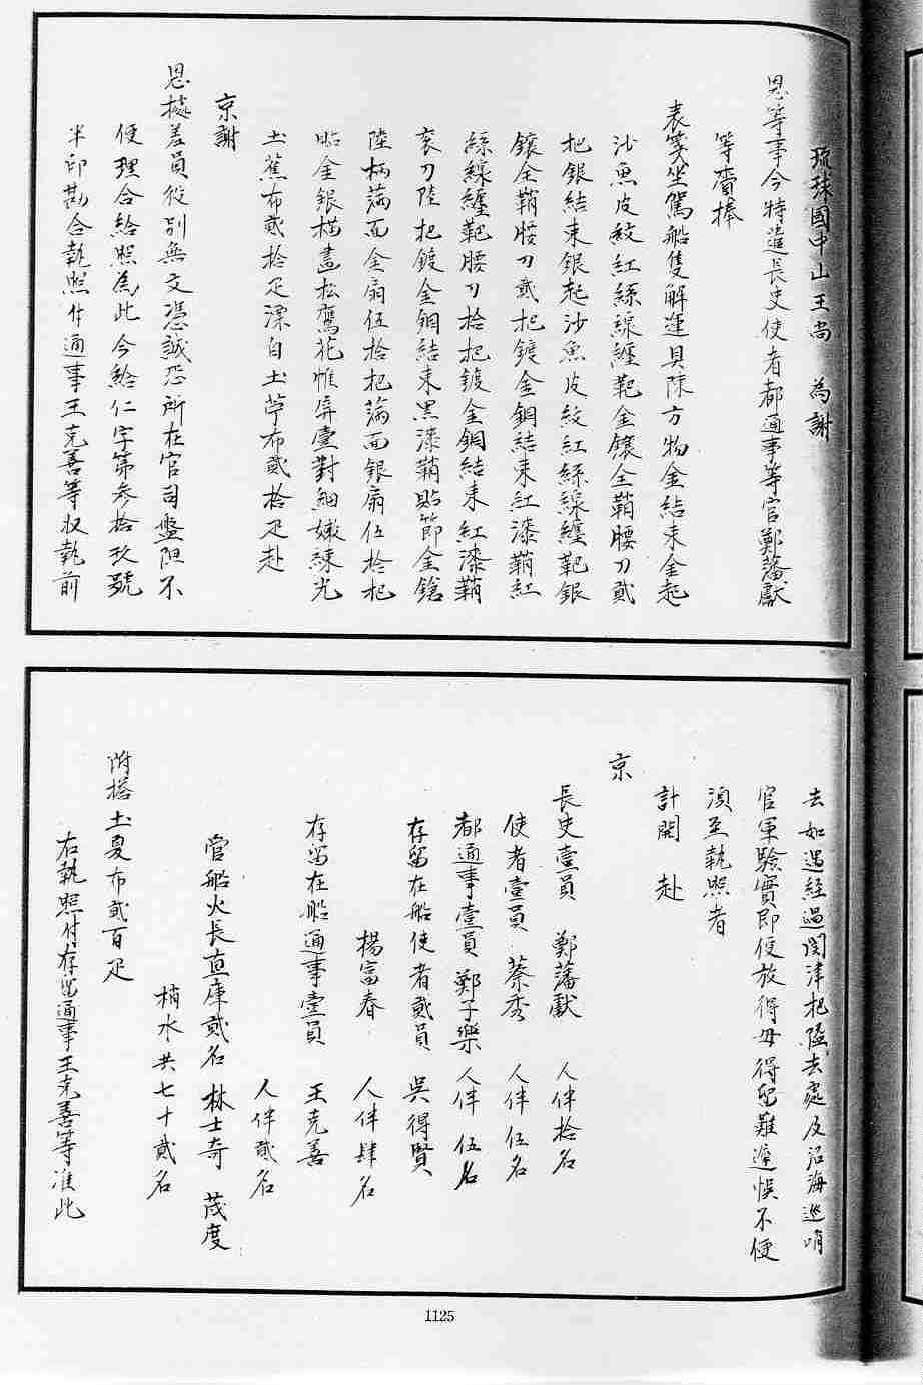 琉球國中山王尚　為謝
恩等事今特遣長史使者都通事等官鄭藩獻
等齎捧
表箋坐駕船隻解運貝陳方物金結束金起
沙魚皮紋紅絲線纏靶金鑲全鞘腰刀貳
把銀結束銀起沙魚皮紋紅絲線纏靶銀
鑲全鞘腰刀貳把鍍金銅結束紅漆鞘紅
絲線纏靶腰刀拾把鍍金銅結束紅漆鞘
袞刀陸把鍍金銅結束黑漆鞘貼節金鎗
陸柄滿面金扇伍拾把滿面銀扇伍拾把
貼金銀描畫松鷹花帷屏壹對細嫩練光
土蕉布貳拾疋漂白土苧布貳拾疋赴
京謝
恩據差員役別無文憑誠恐所在官司盤阻不
便理合給照為此今給仁字第參拾玖號
半印勘合執照付通事王克善等收執前
去如遇經過関津把隘去處及沿海巡哨
官軍驗實即便放行毋得留難遲悞不便
須至執照者
計開　赴
京
長史壹員　鄭藩獻　人伴拾名
使者壹員　蔡秀　人伴伍名
都通事壹員　鄭子樂　人伴伍名
存留在船使者貳員　吳得賢
楊富春　人伴肆名
存留在船通事壹員　王克善
人伴貳名
管船火長直庫貳名　林士奇　茂度
梢水共七十貳名
附搭土夏布貳百疋
右執照付存留通事王克善等准此
1125